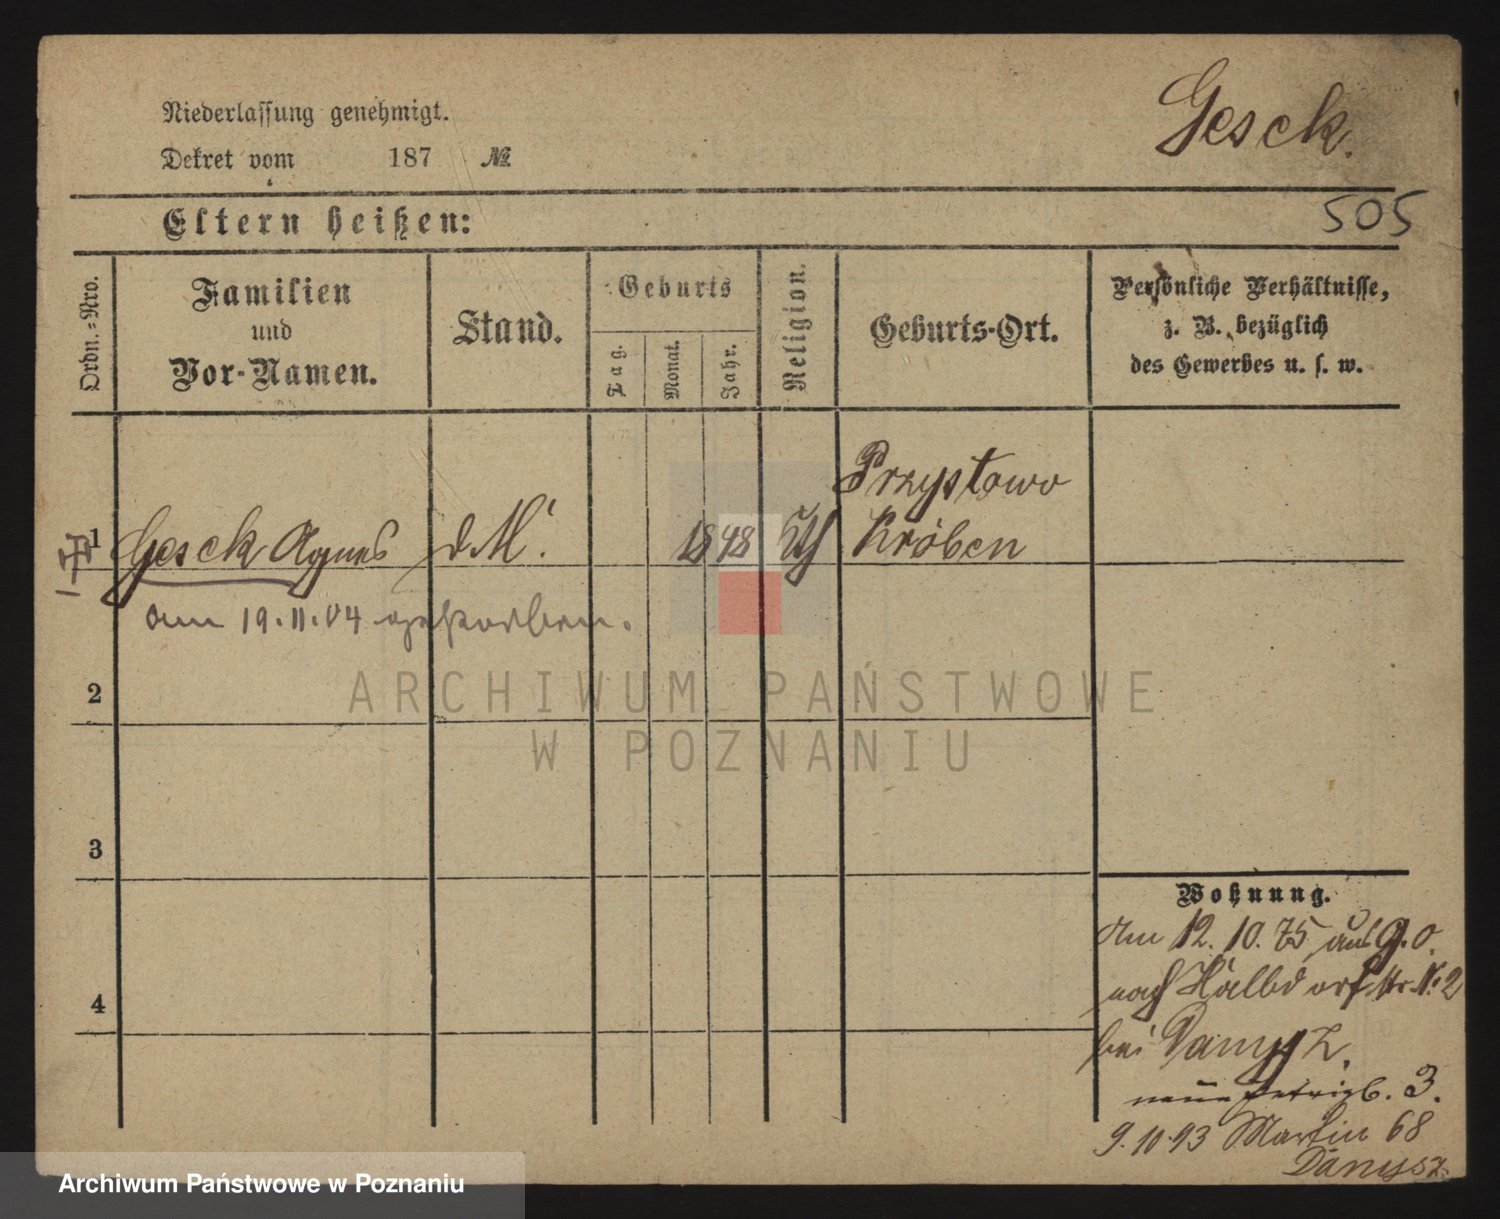 Niederlassung genehmigt.
Dekret vom 187 №
Gesck.
Eltern heißen:
505
Ordn.=Nro.
Familien
und
Vor-Namen.
Stand.
Geburts
Tag.
Monat.
Jahr.
Religion.
Geburts-Ort.
Persönliche Verhältnisse,
z. B. bezüglich
des Gewerbes u. s. w.
Przystawo
1 Gesck Agnes d. M. 1848 Kth Kröben
am 19.11.04 gestorben.
2
ARCHIWUM PAŃSTWOWE
W POZNANIU
3
4
Wohnung.
Am 12. 10. 75 aus g. o.
nach Halbdorfstr. № 2
bei Danysz.
neue 3.
9.10.93 Martin 68
Danysz
Archiwum Państwowe w Poznaniu